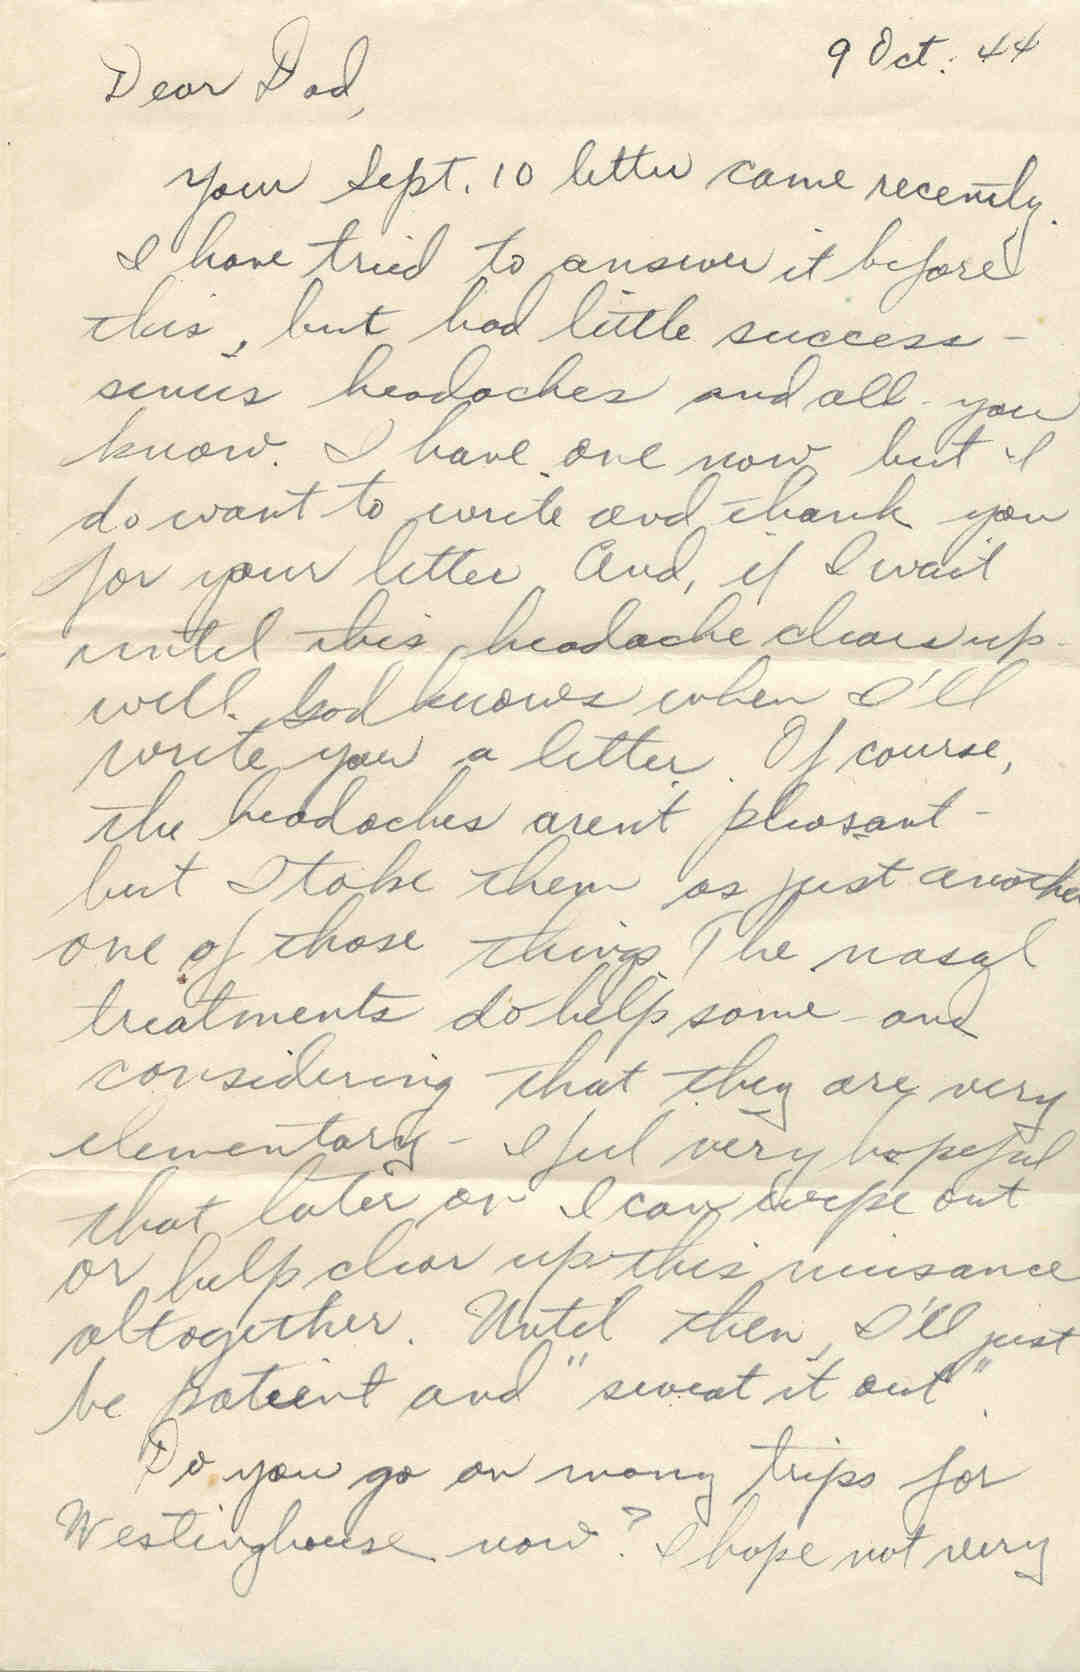 9 Oct. 44
Dear Dad,
Your Sept. 10 letter came recently.
I have tried to answer it before
this, but had little success -
sinus headaches and all - you
know. I have one now but I
do want to write and thank you
for your letter. And, if I wait
until this headache clears up -
well. God knows when I'll
write you a letter. Of course,
the headaches aren't pleasant -
but I take them as just another
one of those things. The nasal
treatments do help some - and
considering that they are very
elementary - I feel very hopeful
that later on I can wipe out
or help clear up this nuisance
altogether. Until then, I'll just
be patient and "sweat it out".
Do you go on many trips for
Westinghouse now? I hope not very